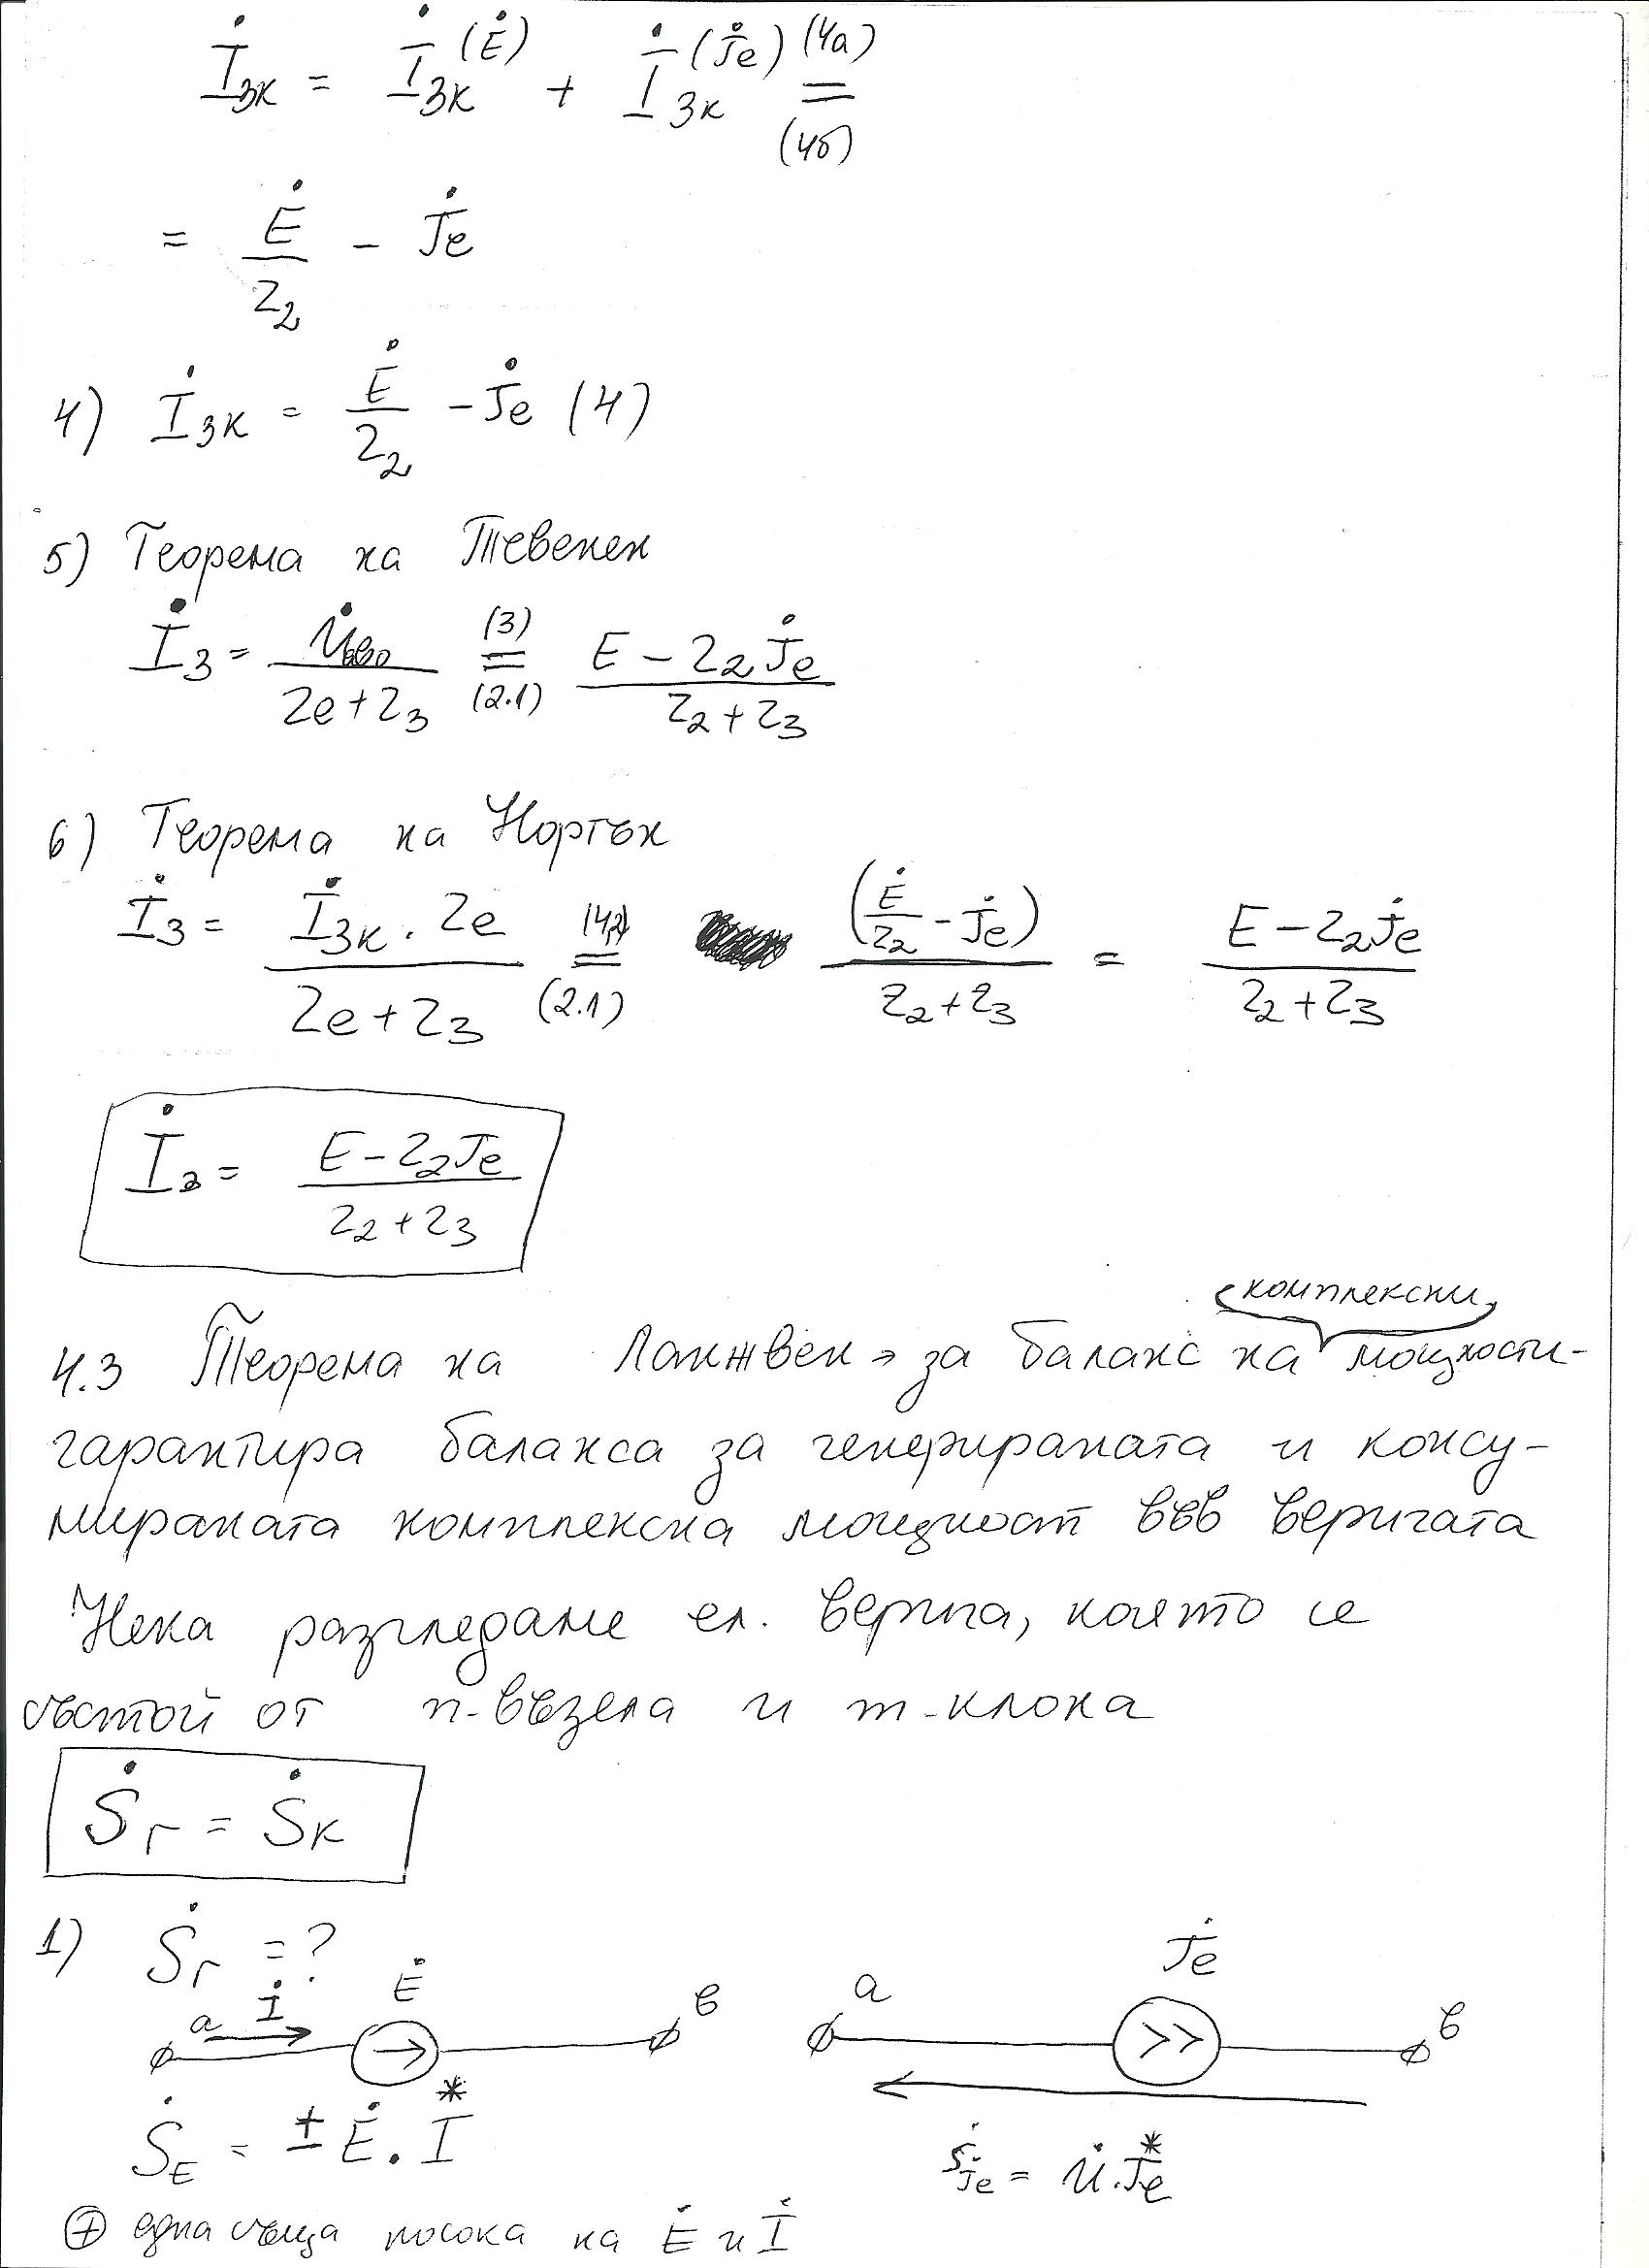 İ₃к = İ₃к^(Ė) + İ₃к^(J̇e) (4а) = (4б)
= Ė/Z₂ - J̇e
4) İ₃к = Ė/Z₂ - J̇e (4)
5) Теорема на Тевенен
İ₃ = U̇ав₀/(Ze+Z₃) (3) = (2.1) (E - Z₂J̇e)/(Z₂+Z₃)
6) Теорема на Нортън
İ₃ = İ₃к . Ze/(Ze+Z₃) = (2.1) (Ė/Z₂ - J̇e)/(Z₂+Z₃) = (E - Z₂J̇e)/(Z₂+Z₃)
İ₃ = (E - Z₂Je)/(Z₂+Z₃)
комплексни
4.3 Теорема на Ланжвен → за баланс на мощности-
гарантира баланса за генерираната и консу-
мираната комплексна мощност във веригата
Нека разгледаме ел. верига, която се
състой от n-възела и m-клона
Ṡг = Ṡк
1) Ṡг = ?
İ Ė J̇e
a в a в
ṠE = ± Ė . I*
ṠJe = U̇ . Je*
⊕ една съща посока на Ė и İ